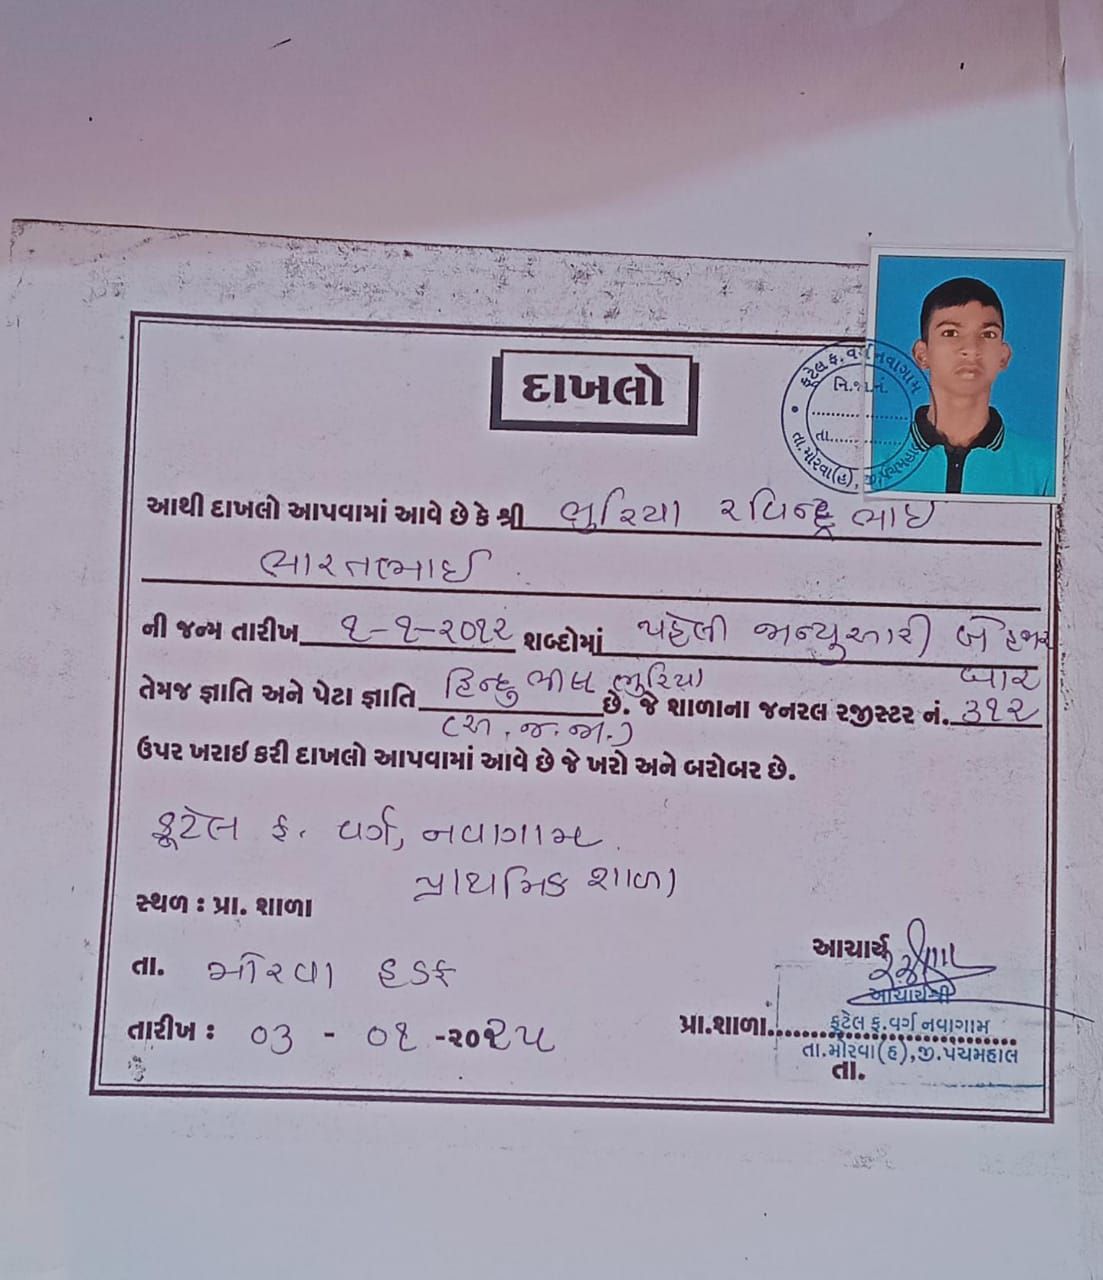 દાખલો
ફૂટેલ ફ. વર્ગ નવાગામ
નિ.શા.નં.
તા.
તા.મોરવા(હ), જી.પંચમહાલ
આથી દાખલો આપવામાં આવે છે કે શ્રી ભુરિયા રવિન્દ્રભાઇ
ભારતભાઈ
ની જન્મ તારીખ ૧-૧-૨૦૧૨ શબ્દોમાં પહેલી જાન્યુઆરી બે હજાર
બાર
તેમજ જ્ઞાતિ અને પેટા જ્ઞાતિ હિન્દુ ભીલ ભુરિયા છે. જે શાળાના જનરલ રજીસ્ટર નં. ૩૧૨
(અ.જ.જા.)
ઉપર ખરાઇ કરી દાખલો આપવામાં આવે છે જે ખરો અને બરોબર છે.
ફૂટેલ ફ. વર્ગ, નવાગામ
પ્રાથમિક શાળા
સ્થળ : પ્રા. શાળા
આચાર્ય
તા. મોરવા હડફ
આચાર્યશ્રી
તારીખ : ૦૩ - ૦૧ -૨૦૨૫
પ્રા.શાળા ફૂટેલ ફ.વર્ગ નવાગામ
તા.મોરવા(હ),જી.પંચમહાલ
તા.